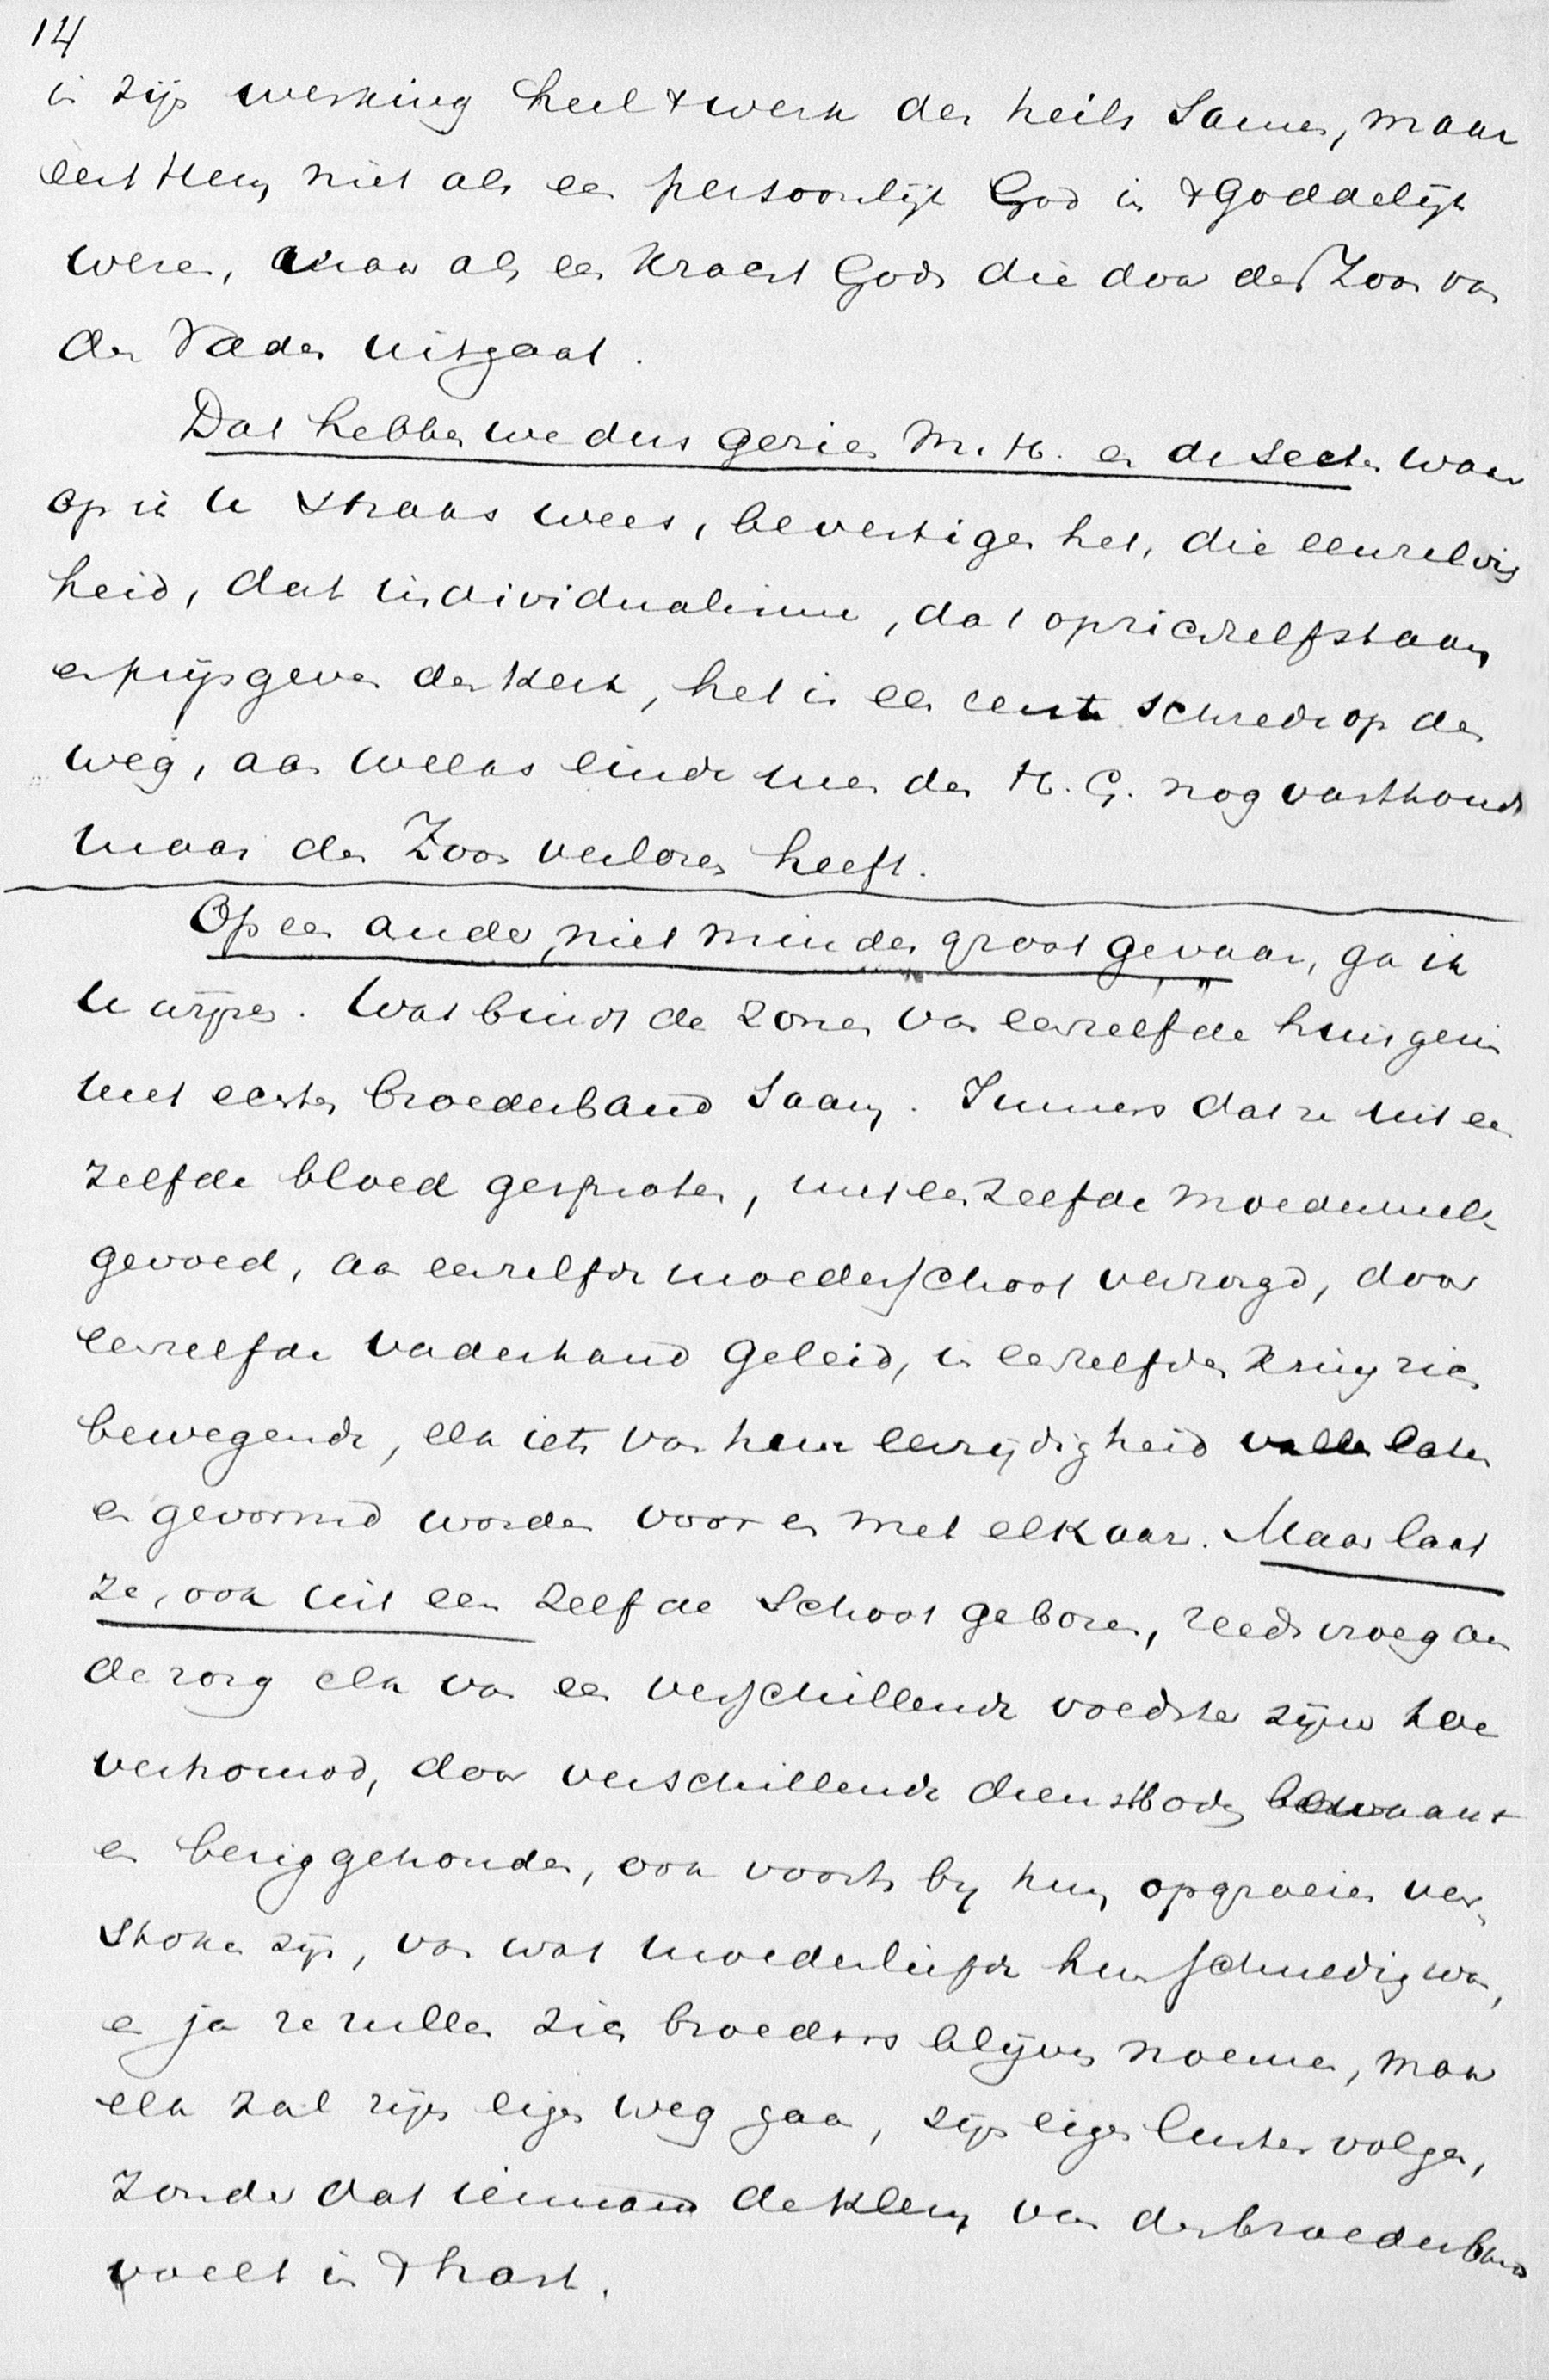 14
in zijn werking heel 't werk des heils samen, maar
eert Hem niet als een persoonlijk God in 't Goddelijk
wezen, maar als een kracht Gods die door den Zoon van
den Vader uitgaat.
Dat hebben we dus gezien M. H. en de secten waar
op ik u straks wees, bevestigen het, die eenzelvig
heid, dat individualisme, dat op zichzelf staan
en prijsgeven der Kerk, het is een eerste schrede op den
weg, aan welks einde men den H. G. nog vasthoudt
maar den Zoon verloren heeft.
Op een ander, niet minder groot gevaar, ga ik
u wijzen. Wat bindt de zonen van eenzelfde huisgezin
met echten broederband saam. Immers dat ze uit een
zelfde bloed gesproten, met een zelfde moedermelk
gevoed, aan eenzelfde moederschoot verzorgd, door
eenzelfde vaderhand geleid, in eenzelfden kring zich
bewegende, elk iets van hun eenzijdigheid vallen laten
en gevormd worden voor en met elkaar. Maar laat
ze, ook uit een zelfde schoot geboren, reeds vroeg aan
de zorg elk van een verschillende voedster zijn toe
vertrouwd, door verschillende dienstboden bewaakt
en beziggehouden, ook voorts bij hun opgroeien ver-
stoken zijn, van wat moederliefde hun schuldig was,
en ja ze zullen zich broeders blijven noemen, maar
elk zal zijn eigen weg gaan, zijn eigen lusten volgen,
zonder dat iemand de klem van den broederband
voelt in 't hart.